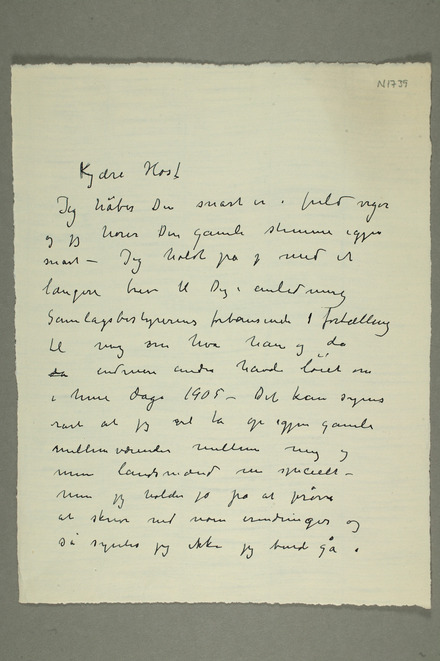 N1739
Kjære Høst
Jeg håber Du snart er i fuld vigør
og jeg hører Din gamle stemme igjen
snart – Jeg holdt på med et
længere brev til Dig i anledning
Samlagsbestyrerens forbausende fortælling
til mig om hva han og da
endnu andre havde løiet om
i hine dage 1905 – Det kan synes
rart at jeg vil ta op igjen gamle
mellemværender mellem mig og
mine landsmænd specielt –
men jeg holder jo på at prøve
at skrive ned nogen erindringer og
så syntes jeg ikke jeg burde gå